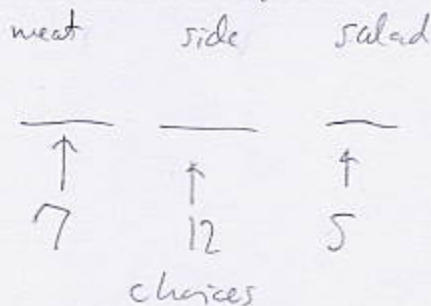 meat side salad
7 12 5
choices